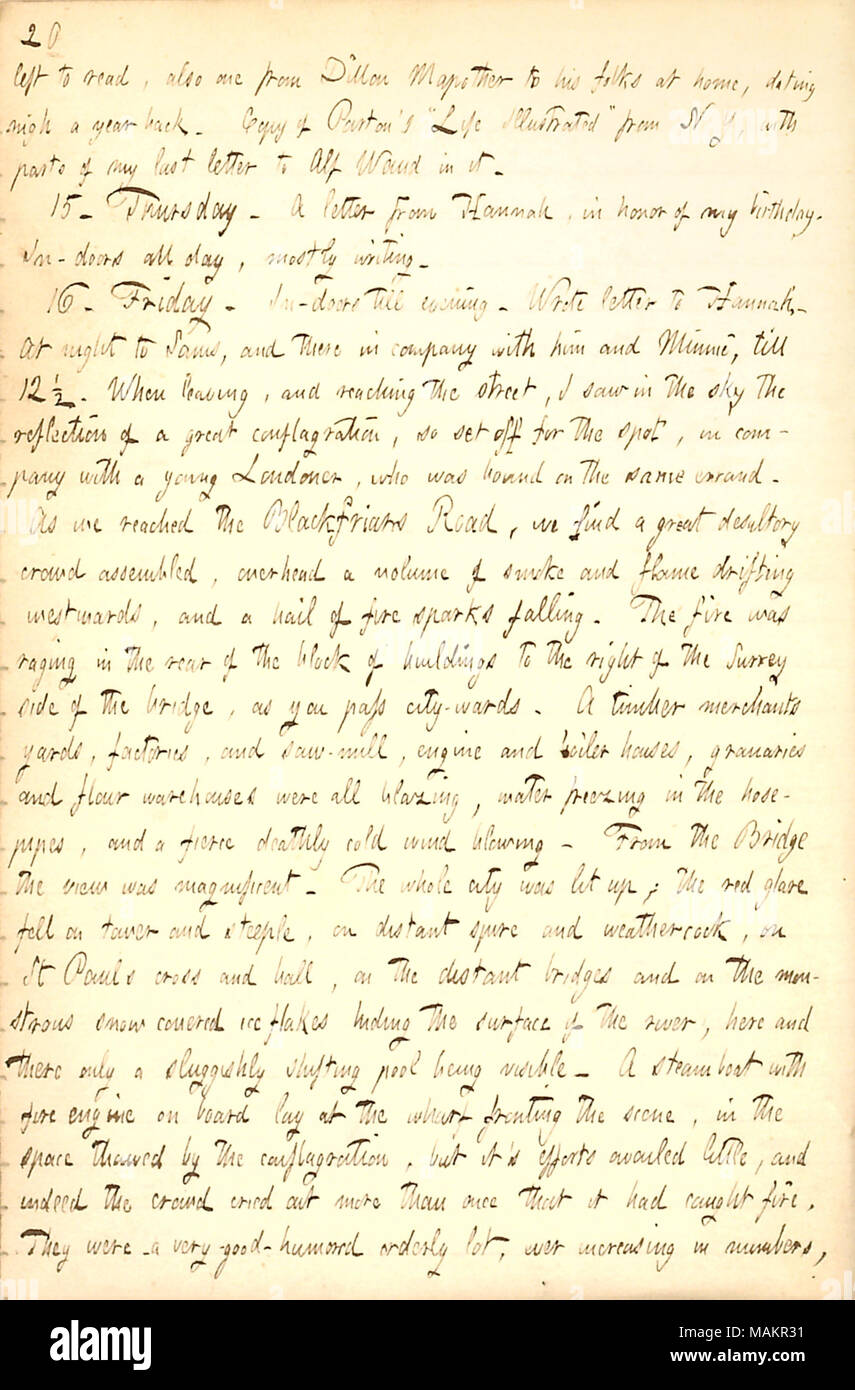 20
left to read, also one from Dillon Mapother to his folks at home, dating
nigh a year back. Copy of Parton's "Life Illustrated" from N. Y, with
parts of my last letter to Alf Waud in it.
15. Thursday. A letter from Hannah, in honor of my birthday.
In-doors all day, mostly writing.
16. Friday. In-doors till evening. Wrote letter to Hannah.
At night to Sams, and there in company with him and Minnie, till
12 ½. When leaving, and reaching the street, I saw in the sky the
reflection of a great conflagration, so set off for the spot, in com-
pany with a young Londoner, who was bound on the same errand.
As we reached the Blackfriars Road, we find a great desultory
crowd assembled, overhead a volume of smoke and flame drifting
westwards, and a hail of fire sparks falling. The fire was
raging in the rear of the block of buildings to the right of the Surrey
side of the bridge, as you pass city-wards. A timber merchants
yards, factories, and saw-mill, engine and boiler houses, granaries
and flour warehouses were all blazing, water freezing in the hose-
pipes, and a fierce deathly cold wind blowing. From the Bridge
the view was magnificent. The whole city was lit up, the red glare
fell on tower and steeple, on distant spire and weathercock, on
St Pauls cross and ball, on the distant bridges and on the mon-
strous snow covered ice flakes hiding the surface of the river, here and
there only a sluggishly shifting pool being visible. A steamboat with
fire engine on board lay at the wharf fronting the scene, in the
space thawed by the conflagration, but it's efforts availed little, and
indeed the crowd cried out more than once that it had caught fire.
They were a very good-humored orderly lot, ever increasing in numbers,
alamy
Image ID: MAKR31
www.alamy.com